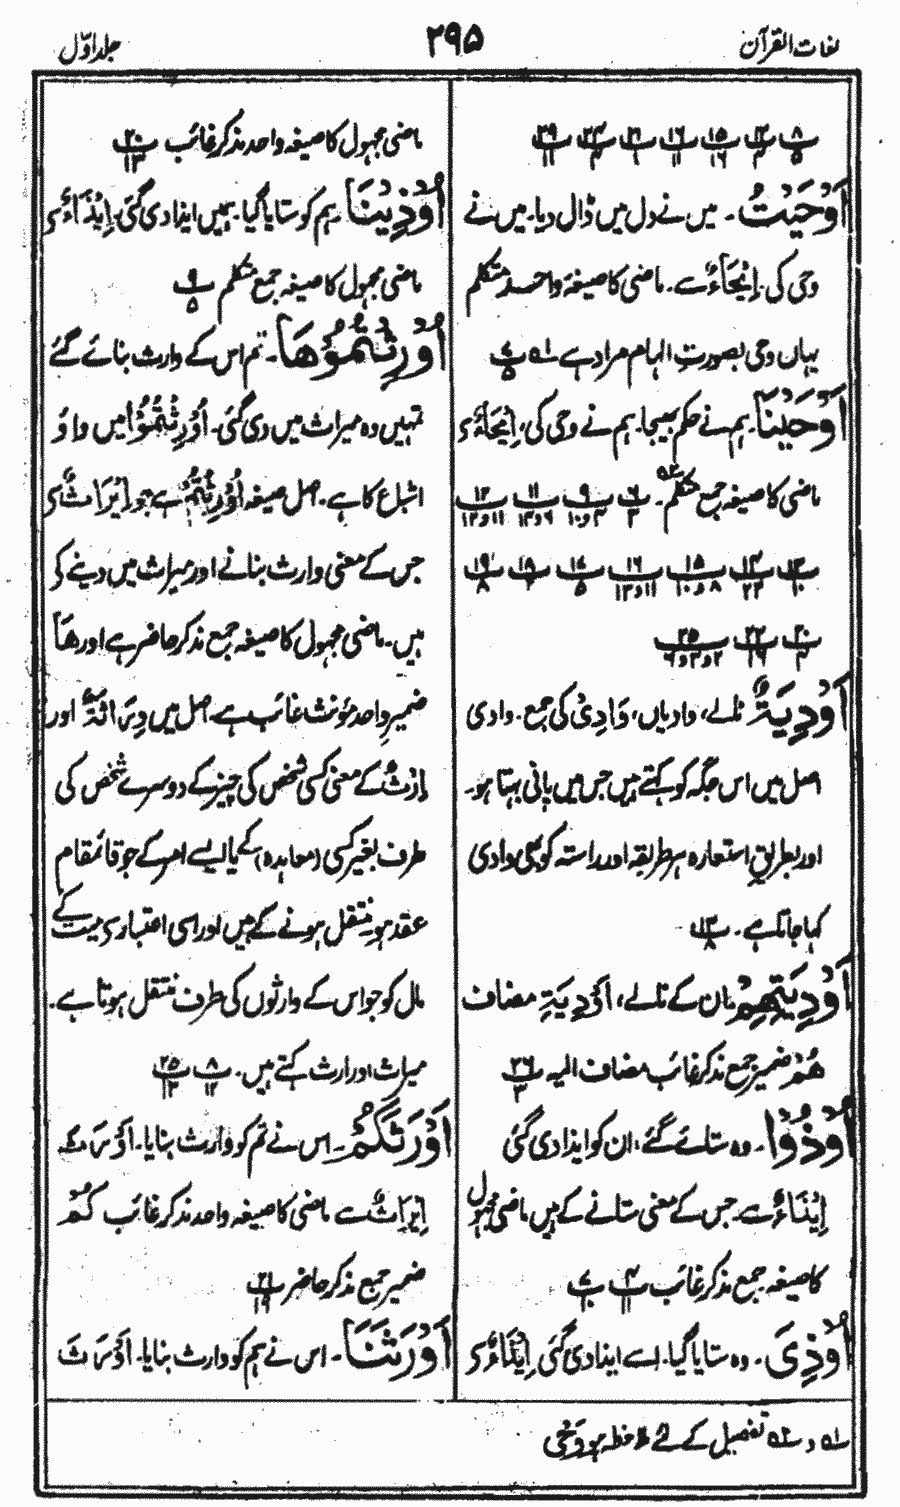 لغات القرآن
۲۹۵
جلد اوّل
اَوْحَيْتُ ۔ میں نے دل میں ڈال دیا۔ میں نے
وحی کی۔ اِيْحَاءٌ سے۔ ماضی کا صیغہ واحد متکلم
یہاں وحی بصورت الہام مراد ہے
اَوْحَيْنَا۔ ہم نے حکم بھیجا۔ ہم نے وحی کی، اِيْحَاءٌ سے
ماضی کا صیغہ جمع متکلم۔
اَوْدِيَةٌ نالے، وادیاں، وَادِیْ کی جمع۔ وادی
اصل میں اس جگہ کو کہتے ہیں جس میں پانی بہتا ہو۔
اور بطریق استعارہ ہر طریقہ اور راستہ کو بھی وادی
کہا جاتا ہے۔
اَوْدِيَتِهِمْ ان کے نالے، اَوْدِيَةِ مضاف
هُمْ ضمیر جمع مذکر غائب مضاف الیہ
اُوْذُوْا۔ وہ ستائے گئے، ان کو ایذا دی گئی
اِيْذَاءٌ سے جس کے معنی ستانے کے ہیں ماضی مجہول
کا صیغہ جمع مذکر غائب
اُوْذِیَ۔ وہ ستایا گیا۔ اسے ایذا دی گئی اِيْذَاءٌ سے
ماضی مجہول کا صیغہ واحد مذکر غائب
اُوْذِيْنَا۔ ہم کو ستایا گیا۔ ہمیں ایذا دی گئی۔ اِيْذَاءٌ سے
ماضی مجہول کا صیغہ جمع متکلم
اُوْرِثْتُمُوْهَا۔ تم اس کے وارث بنائے گئے
تمہیں وہ میراث میں دی گئی۔ اُوْرِثْتُمُوْا میں واؤ
اشباع کا ہے۔ اصل صیغہ اُوْرِثْتُمْ ہے جو اِيْرَاثٌ سے
جس کے معنی وارث بنانے اور میراث میں دینے کے
ہیں۔ ماضی مجہول کا صیغہ جمع مذکر حاضر ہے اور هَا
ضمیر واحد مؤنث غائب ہے۔ اصل میں وِرَاثَةٌ اور
اِرْثٌ کے معنی کسی شخص کی چیز کے دوسرے شخص کی
طرف بغیر کسی (معاہدہ) کے یا ایسے امر کے جو قائمقام
عقد ہو منتقل ہونے کے ہیں اور اسی اعتبار سے میت کے
مال کو جو اس کے وارثوں کی طرف منتقل ہوتا ہے۔
میراث اور ارث کہتے ہیں۔
اَوْرَثَكُمْ۔ اس نے تم کو وارث بنایا۔ اَوْرَثَ
اِيْرَاثٌ سے ماضی کا صیغہ واحد مذکر غائب كُمْ
ضمیر جمع مذکر حاضر
اَوْرَثَنَا۔ اس نے ہم کو وارث بنایا۔ اَوْرَثَ
تفصیل کے لئے ملاحظہ ہو وَحْی